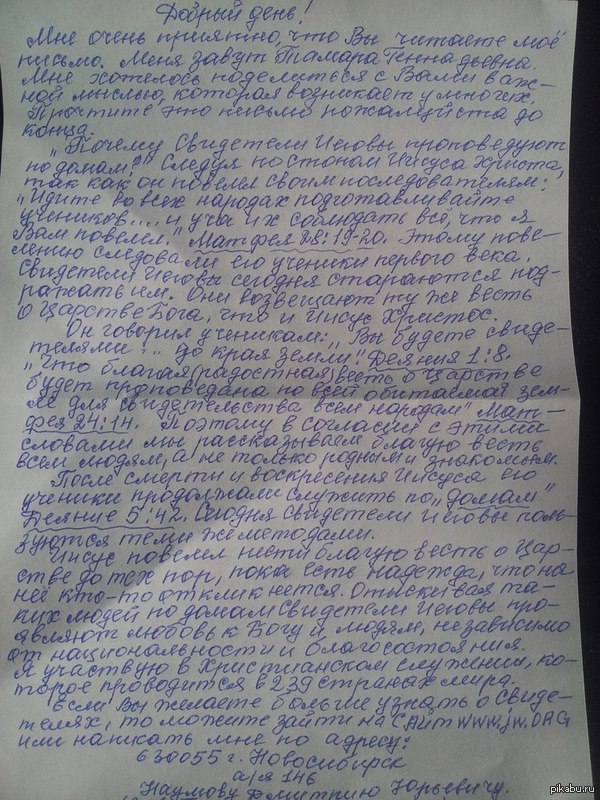 Добрый день!
Мне очень приятно, что Вы читаете моё
письмо. Меня зовут Тамара Геннадьевна.
Мне хотелось поделиться с Вами важ-
ной мыслью, которая возникает у многих.
Прочтите это письмо пожалуйста до
конца.
„Почему Свидетели Иеговы проповедуют
по домам?" Следуя по стопам Иисуса Христа,
так как он повелел своим последователям:
„Идите во всех народах подготавливайте
учеников..., и уча их соблюдать всё, что я
Вам повелел." Матфея 28:19-20. Этому пове-
лению следовали его ученики первого века.
Свидетели Иеговы сегодня стараются под-
ражать им. Они возвещают ту же весть
о Царстве Бога, что и Иисус Христос.
Он говорил ученикам: „Вы будете свиде-
телями... до края земли". Деяния 1:8.
„Что благая (радостная) весть о Царстве
будет проповедана по всей обитаемой зем-
ле для свидетельства всем народам" Мат-
фея 24:14. Поэтому в согласии с этими
словами мы рассказываем благую весть
всем людям, а не только родным и знакомым.
После смерти и воскресения Иисуса его
ученики продолжали служить по „домам"
Деяние 5:42. Сегодня Свидетели Иеговы поль-
зуются теми же методами.
Иисус повелел нести благую весть о Цар-
стве до тех пор, пока есть надежда, что на
неё кто-то откликнется. Отыскивая та-
ких людей по домам Свидетели Иеговы про-
являют любовь к Богу и людям, независимо
от национальности и благосостояния.
Я участвую в Христианском служении, ко-
торое проводится в 239 странах мира.
Если Вы желаете больше узнать о Свиде-
телях, то можете зайти на сайт www.jw.ORG
или написать мне по адресу:
630055 г. Новосибирск
а/я 146
Наумову Дмитрию Юрьевичу.
pikabu.ru